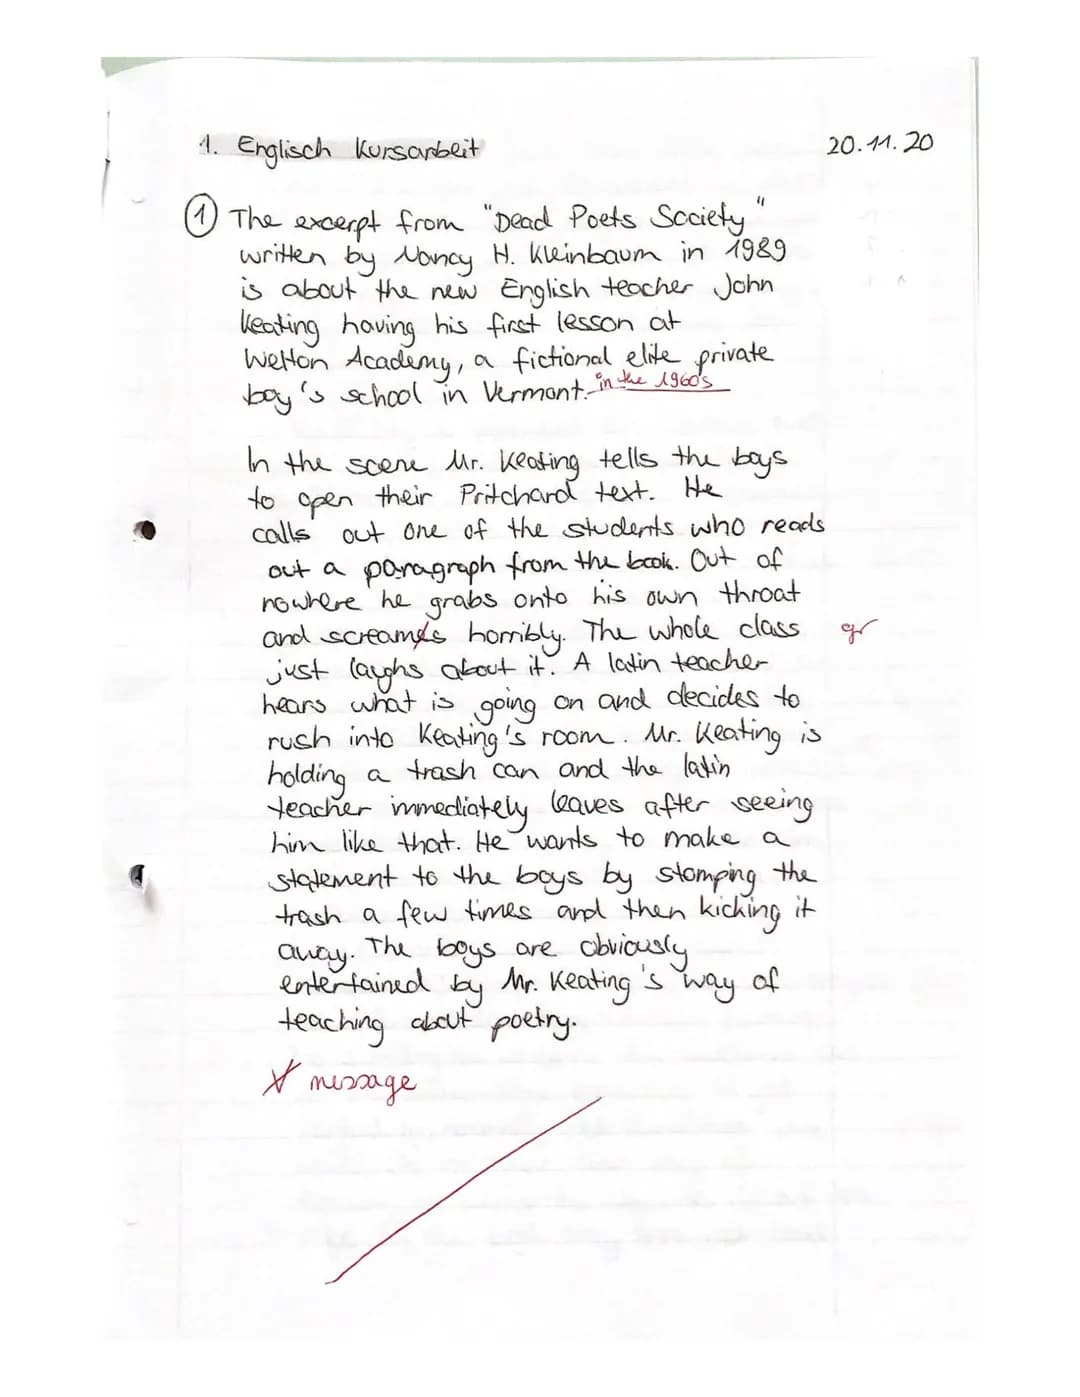 1. Englisch Kursarbeit 20.11.20
① The excerpt from "Dead Poets Society"
written by Nancy H. Kleinbaum in 1989
is about the new English teacher John
Keating having his first lesson at
Welton Academy, a fictional elite private
boy's school in Vermont. in the 1960's
In the scene Mr. Keating tells the boys
to open their Pritchard text. He
calls out one of the students who reads
out a paragraph from the book. Out of
nowhere he grabs onto his own throat
and screams horribly. The whole class gr
just laughs about it. A latin teacher
hears what is going on and decides to
rush into Keating's room. Mr. Keating is
holding a trash can and the latin
teacher immediately leaves after seeing
him like that. He wants to make a
statement to the boys by stomping the
trash a few times and then kicking it
away. The boys are obviously
entertained by Mr. Keating's way of
teaching about poetry.
message